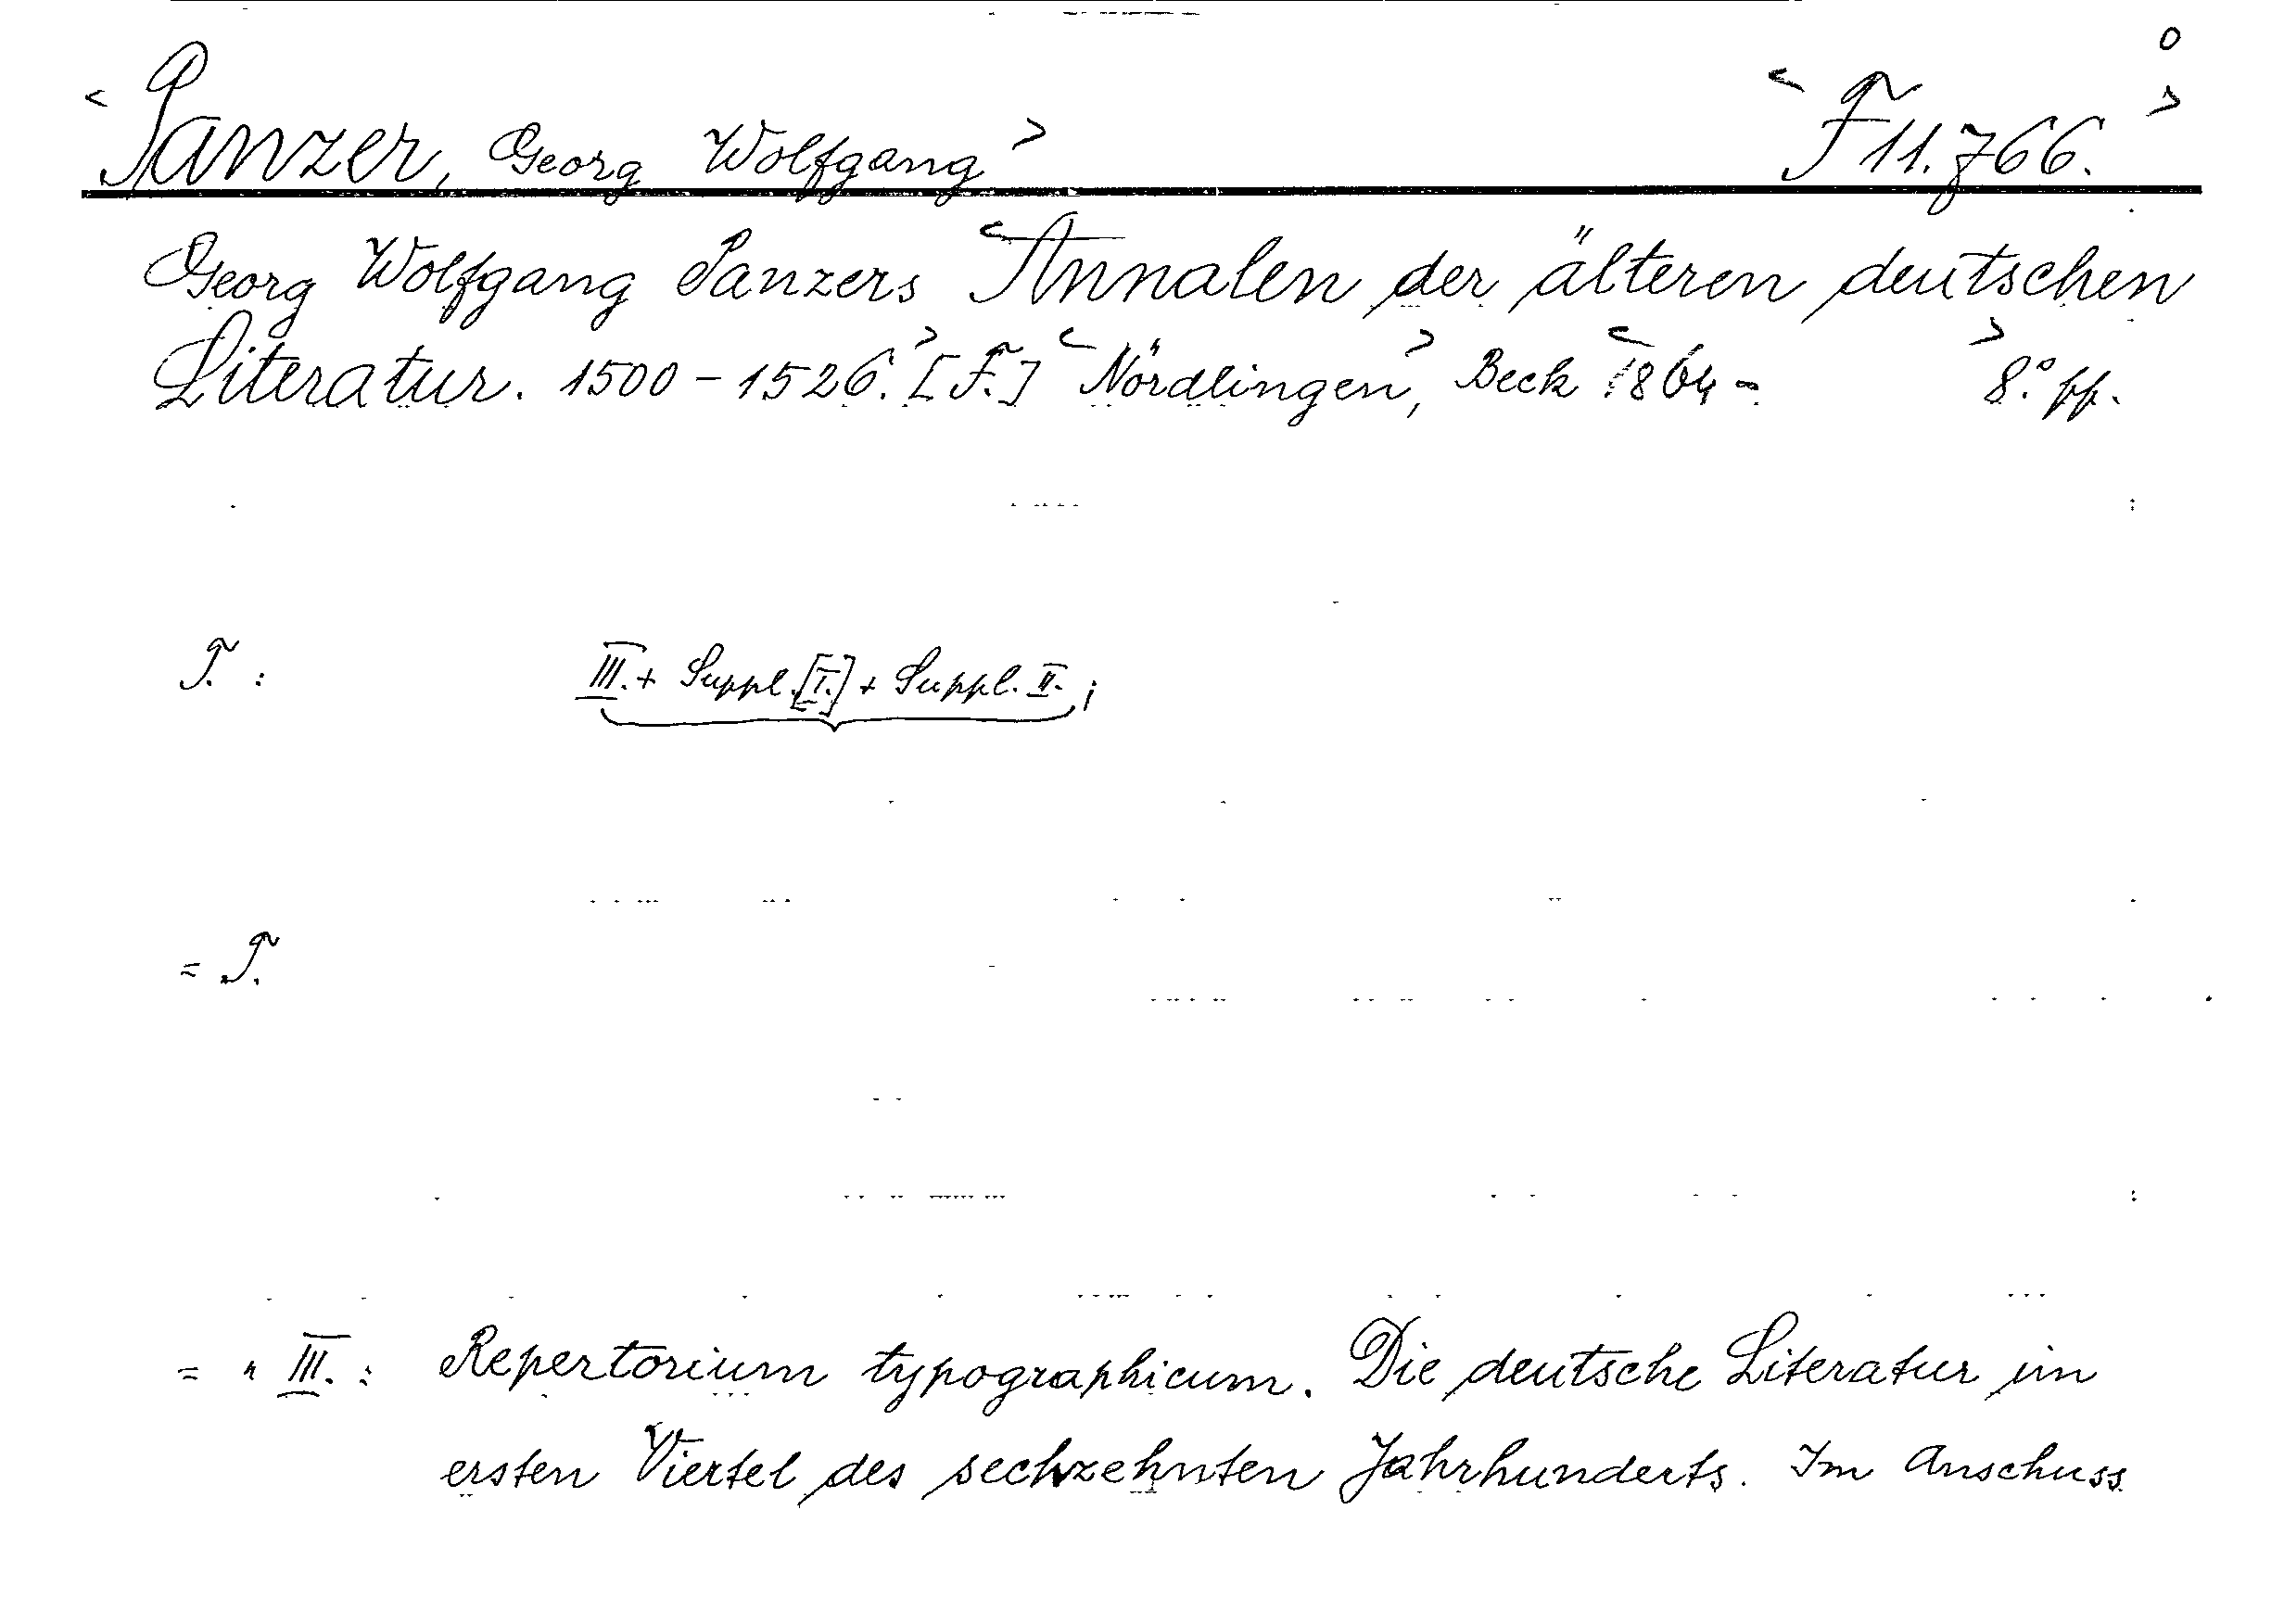 o
< Panzer, Georg Wolfgang > < F 11.766. >
Georg Wolfgang Panzers < Annalen der älteren deutschen
Literatur. 1500 - 1526. > [F.] < Nördlingen >, Beck < 1864 - > 8.° pp.
T. : III. + Suppl. [I.] + Suppl. II. ;
= T.
= " III. : Repertorium typographicum. Die deutsche Literatur im
ersten Viertel des sechzehnten Jahrhunderts. Im Anschuss